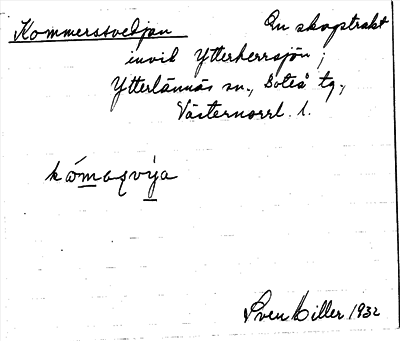 Kommerssvedjan
En skogstrakt
invid Ytterherrsjön;
Ytterlännäs sn., Boteå tg.,
Västernorrl. l.
Sven Hiller 1932